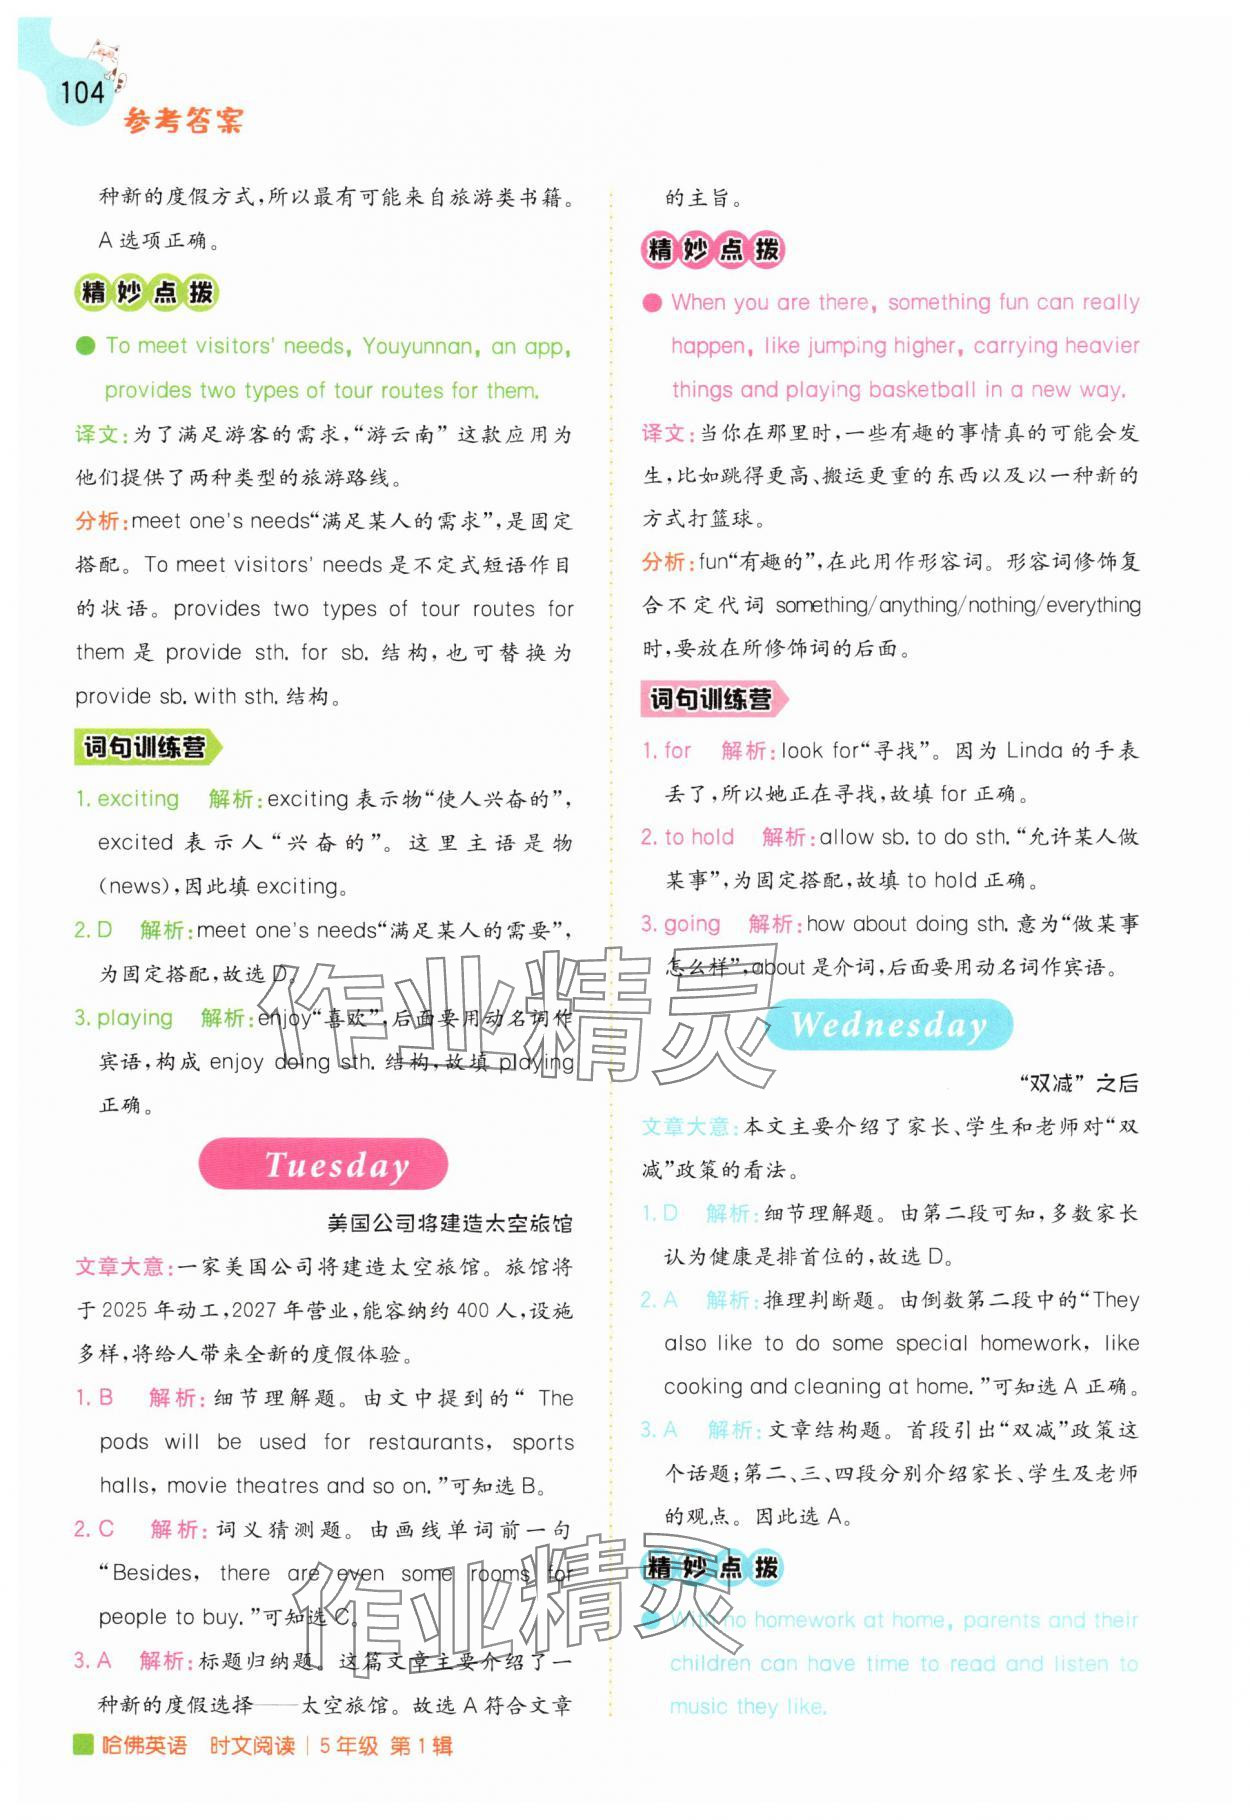 104
参考答案
种新的度假方式,所以最有可能来自旅游类书籍。
A 选项正确。
精妙点拨
● To meet visitors' needs, Youyunnan, an app,
provides two types of tour routes for them.
译文:为了满足游客的需求,“游云南”这款应用为
他们提供了两种类型的旅游路线。
分析:meet one's needs“满足某人的需求”,是固定
搭配。To meet visitors' needs 是不定式短语作目
的状语。provides two types of tour routes for
them 是 provide sth. for sb. 结构,也可替换为
provide sb. with sth. 结构。
词句训练营
1. exciting 解析:exciting 表示物“使人兴奋的”,
excited 表示人“兴奋的”。这里主语是物
(news),因此填 exciting。
2. D 解析:meet one's needs“满足某人的需要”,
为固定搭配,故选 D。
3. playing 解析:enjoy“喜欢”,后面要用动名词作
宾语,构成 enjoy doing sth. 结构,故填 playing
正确。
Tuesday
美国公司将建造太空旅馆
文章大意:一家美国公司将建造太空旅馆。旅馆将
于 2025 年动工,2027 年营业,能容纳约 400 人,设施
多样,将给人带来全新的度假体验。
1. B 解析:细节理解题。由文中提到的“ The
pods will be used for restaurants, sports
halls, movie theatres and so on.”可知选 B。
2. C 解析:词义猜测题。由画线单词前一句
“Besides, there are even some rooms for
people to buy.”可知选 C。
3. A 解析:标题归纳题。这篇文章主要介绍了一
种新的度假选择——太空旅馆。故选 A 符合文章
哈佛英语 时文阅读 | 5 年级 第 1 辑
的主旨。
精妙点拨
● When you are there, something fun can really
happen, like jumping higher, carrying heavier
things and playing basketball in a new way.
译文:当你在那里时,一些有趣的事情真的可能会发
生,比如跳得更高、搬运更重的东西以及以一种新的
方式打篮球。
分析:fun“有趣的”,在此用作形容词。形容词修饰复
合不定代词 something/anything/nothing/everything
时,要放在所修饰词的后面。
词句训练营
1. for 解析:look for“寻找”。因为 Linda 的手表
丢了,所以她正在寻找,故填 for 正确。
2. to hold 解析:allow sb. to do sth.“允许某人做
某事”,为固定搭配,故填 to hold 正确。
3. going 解析:how about doing sth. 意为“做某事
怎么样”,about 是介词,后面要用动名词作宾语。
Wednesday
“双减”之后
文章大意:本文主要介绍了家长、学生和老师对“双
减”政策的看法。
1. D 解析:细节理解题。由第二段可知,多数家长
认为健康是排首位的,故选 D。
2. A 解析:推理判断题。由倒数第二段中的“They
also like to do some special homework, like
cooking and cleaning at home.”可知选 A 正确。
3. A 解析:文章结构题。首段引出“双减”政策这
个话题;第二、三、四段分别介绍家长、学生及老师
的观点。因此选 A。
精妙点拨
● With no homework at home, parents and their
children can have time to read and listen to
music they like.
作业精灵
作业精灵